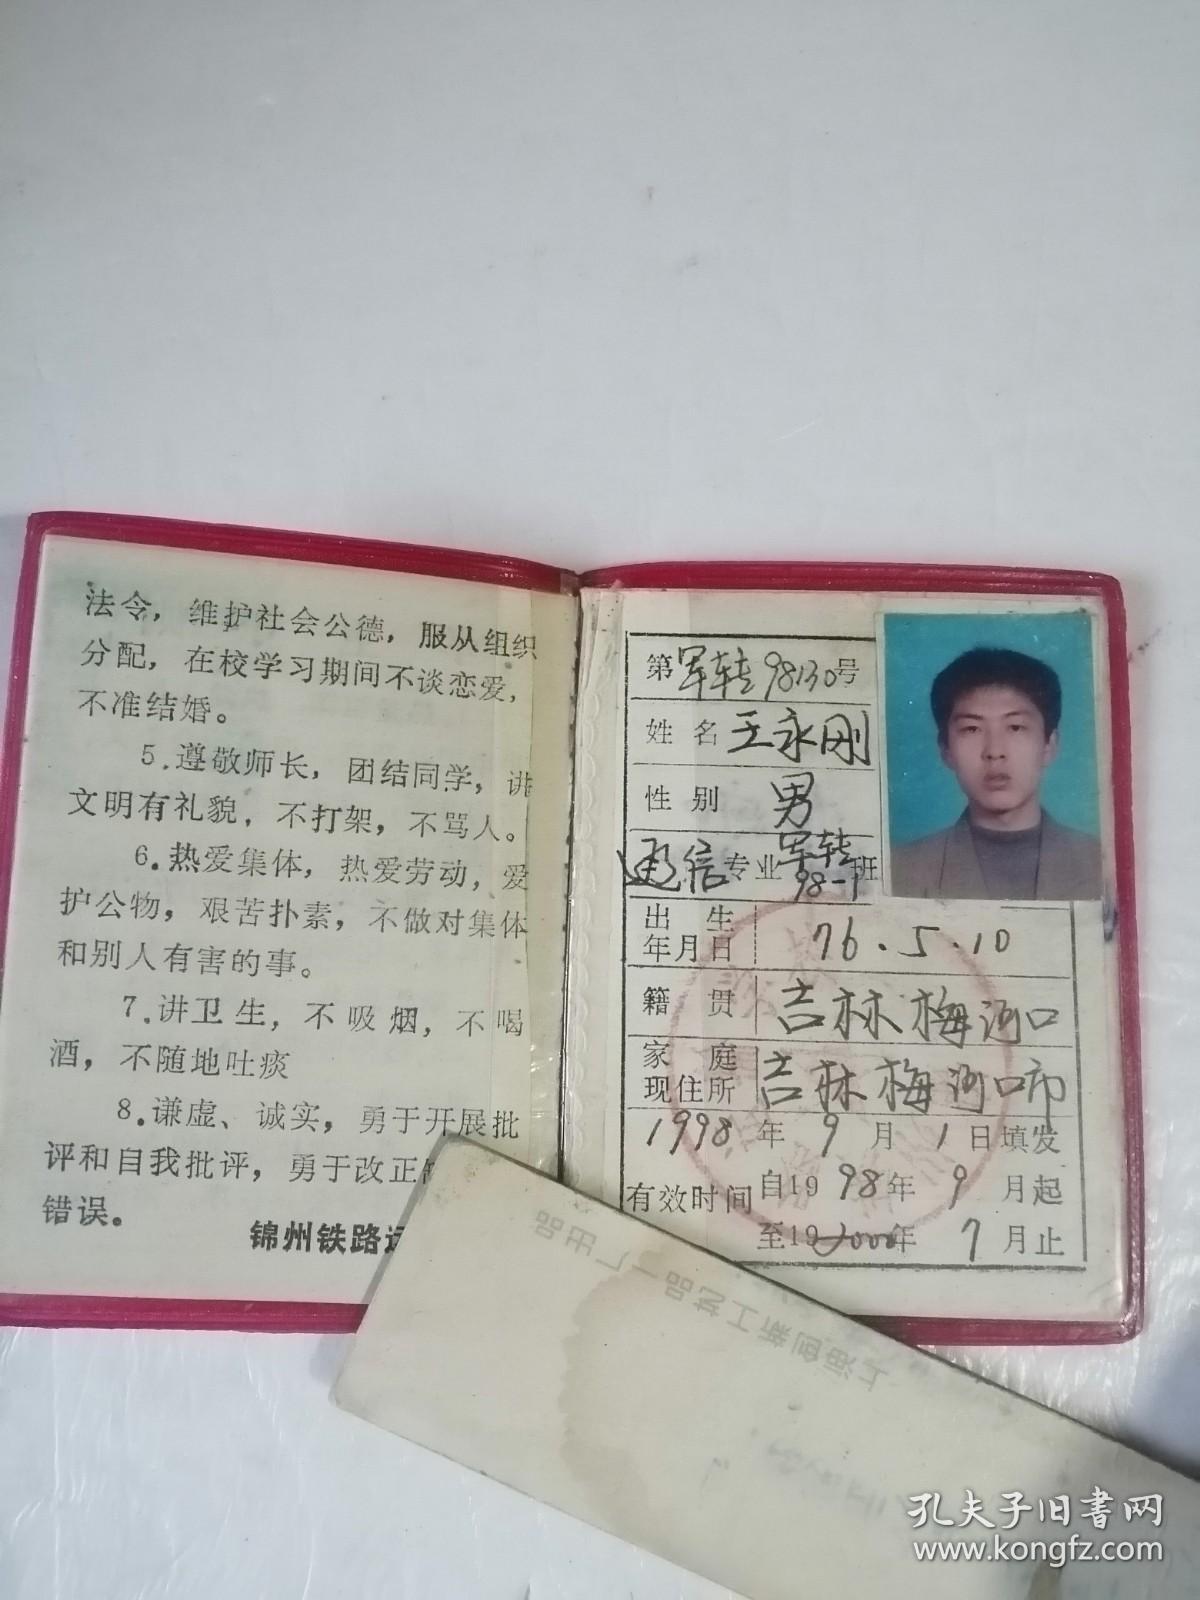 法令，维护社会公德，服从组织
分配，在校学习期间不谈恋爱，
不准结婚。
5.遵敬师长，团结同学，讲
文明有礼貌，不打架，不骂人。
6.热爱集体，热爱劳动，爱
护公物，艰苦扑素，不做对集体
和别人有害的事。
7.讲卫生，不吸烟，不喝
酒，不随地吐痰
8.谦虚、诚实，勇于开展批
评和自我批评，勇于改正
错误。
锦州铁路
第军转98130号
姓名 王永刚
性别 男
通信专业 军转98-1班
出生年月日 76.5.10
籍贯 吉林梅河口
家庭现住所 吉林梅河口市
1998年9月1日填发
有效时间 自1998年9月起
至192000年7月止
上海创新工艺品一厂出品
孔夫子旧书网
www.kongfz.com